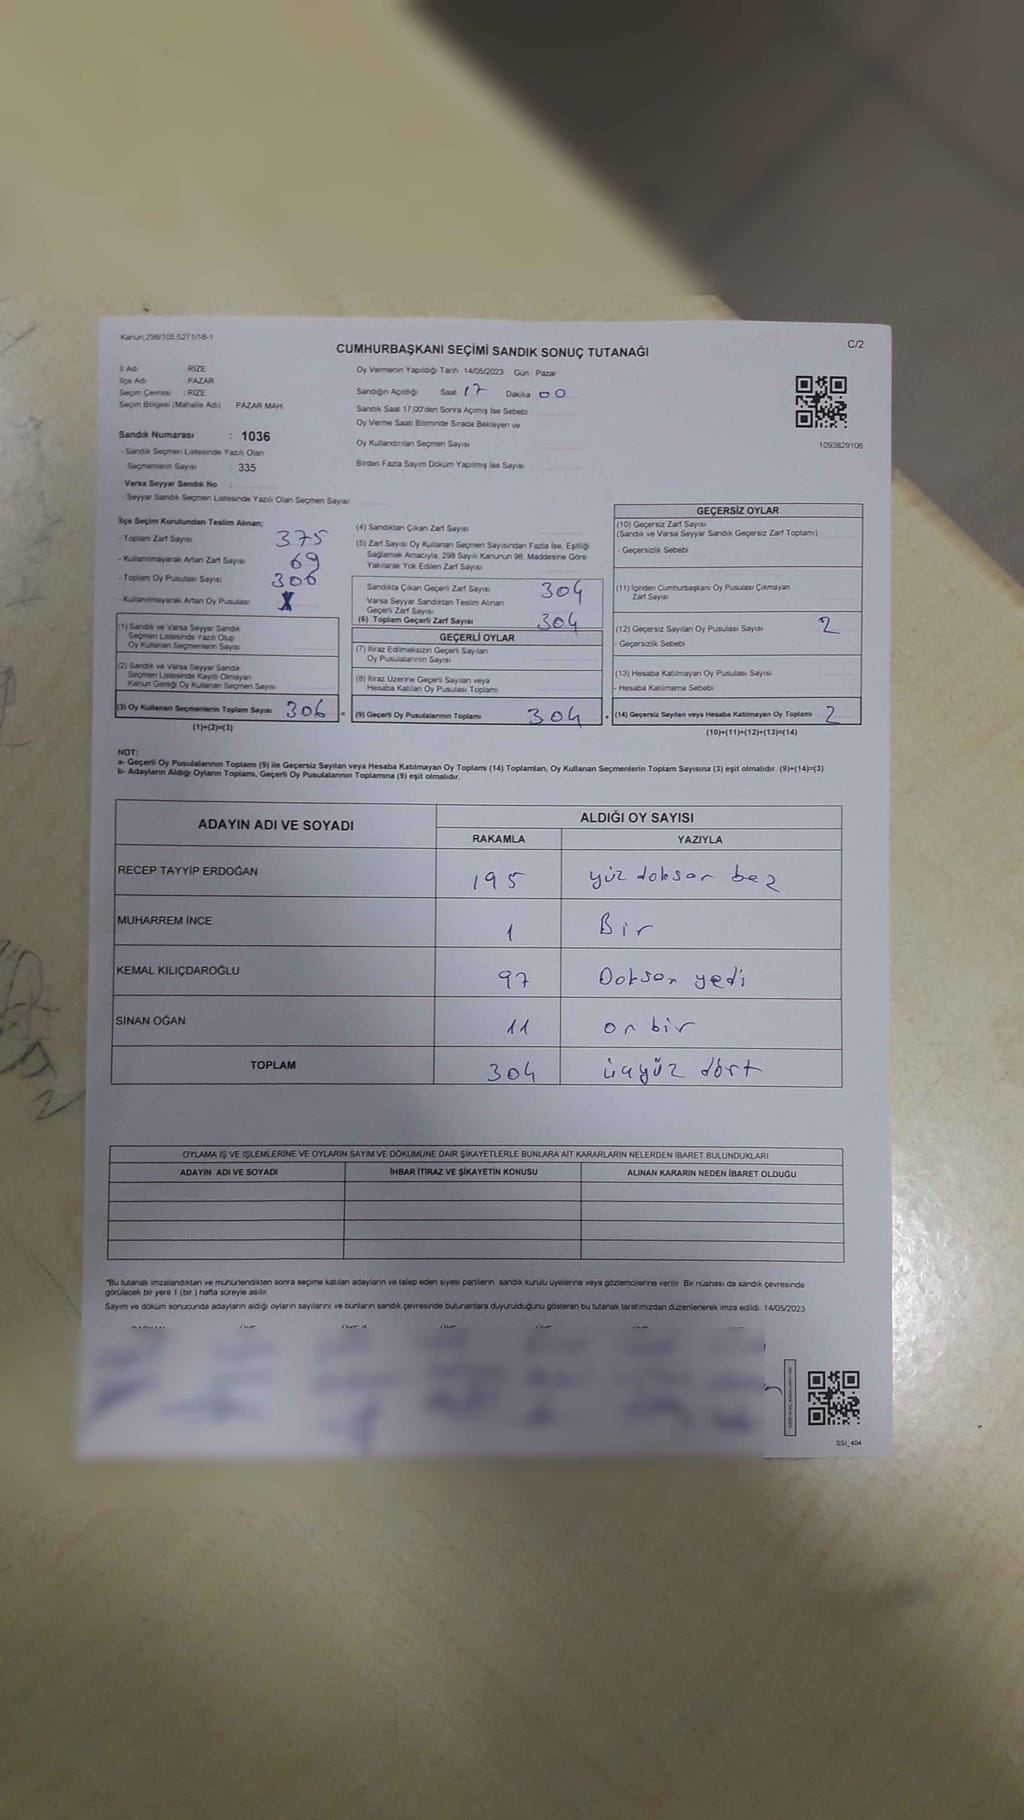 Kanun;298/105,6271/18-1
C/2
CUMHURBAŞKANI SEÇİMİ SANDIK SONUÇ TUTANAĞI
İl Adı RİZE
İlçe Adı PAZAR
Seçim Çevresi :RİZE
Seçim Bölgesi (Mahalle Adı) PAZAR MAH.
Sandık Numarası : 1036
- Sandık Seçmen Listesinde Yazılı Olan
Seçmenlerin Sayısı : 335
Varsa Seyyar Sandık No :
- Seyyar Sandık Seçmen Listesinde Yazılı Olan Seçmen Sayısı:
Oy Vermenin Yapıldığı Tarih :14/05/2023 Gün : Pazar
Sandığın Açıldığı Saat 17 Dakika 00
Sandık Saat 17:00'den Sonra Açılmış İse Sebebi
Oy Verme Saati Bitiminde Sırada Bekleyen ve
Oy Kullandırılan Seçmen Sayısı
Birden Fazla Sayım Döküm Yapılmış İse Sayısı
1093829106
İlçe Seçim Kurulundan Teslim Alınan;
- Toplam Zarf Sayısı 375
- Kullanılmayarak Artan Zarf Sayısı 69
- Toplam Oy Pusulası Sayısı 306
- Kullanılmayarak Artan Oy Pusulası X
(1) Sandık ve Varsa Seyyar Sandık
Seçmen Listesinde Yazılı Olup
Oy Kullanan Seçmenlerin Sayısı
(2) Sandık ve Varsa Seyyar Sandık
Seçmen Listesinde Kayıtlı Olmayan
Kanun Gereği Oy Kullanan Seçmen Sayısı
(3) Oy Kullanan Seçmenlerin Toplam Sayısı 306 =
(1)+(2)=(3)
(4) Sandıktan Çıkan Zarf Sayısı
(5) Zarf Sayısı Oy Kullanan Seçmen Sayısından Fazla İse, Eşitliği
Sağlamak Amacıyla, 298 Sayılı Kanunun 98. Maddesine Göre
Yakılarak Yok Edilen Zarf Sayısı
Sandıkta Çıkan Geçerli Zarf Sayısı 304
Varsa Seyyar Sandıktan Teslim Alınan
Geçerli Zarf Sayısı
(6) Toplam Geçerli Zarf Sayısı 304
GEÇERLİ OYLAR
(7) İtiraz Edilmeksizin Geçerli Sayılan
Oy Pusulalarının Sayısı
(8) İtiraz Üzerine Geçerli Sayılan veya
Hesaba Katılan Oy Pusulası Toplamı
(9) Geçerli Oy Pusulalarının Toplamı 304 +
GEÇERSİZ OYLAR
(10) Geçersiz Zarf Sayısı
(Sandık ve Varsa Seyyar Sandık Geçersiz Zarf Toplamı)
- Geçersizlik Sebebi
(11) İçinden Cumhurbaşkanı Oy Pusulası Çıkmayan
Zarf Sayısı
(12) Geçersiz Sayılan Oy Pusulası Sayısı 2
- Geçersizlik Sebebi
(13) Hesaba Katılmayan Oy Pusulası Sayısı
- Hesaba Katılmama Sebebi
(14) Geçersiz Sayılan veya Hesaba Katılmayan Oy Toplamı 2
(10)+(11)+(12)+(13)=(14)
NOT:
a- Geçerli Oy Pusulalarının Toplamı (9) ile Geçersiz Sayılan veya Hesaba Katılmayan Oy Toplamı (14) Toplamları, Oy Kullanan Seçmenlerin Toplam Sayısına (3) eşit olmalıdır. (9)+(14)=(3)
b- Adayların Aldığı Oyların Toplamı, Geçerli Oy Pusulalarının Toplamına (9) eşit olmalıdır.
ADAYIN ADI VE SOYADI ALDIĞI OY SAYISI
RAKAMLA YAZIYLA
RECEP TAYYİP ERDOĞAN 195 yüz doksan beş
MUHARREM İNCE 1 Bir
KEMAL KILIÇDAROĞLU 97 Doksan yedi
SİNAN OĞAN 11 on bir
TOPLAM 304 üçyüz dört
OYLAMA İŞ VE İŞLEMLERİNE VE OYLARIN SAYIM VE DÖKÜMÜNE DAİR ŞİKAYETLERLE BUNLARA AİT KARARLARIN NELERDEN İBARET BULUNDUKLARI
ADAYIN ADI VE SOYADI İHBAR İTİRAZ VE ŞİKAYETİN KONUSU ALINAN KARARIN NEDEN İBARET OLDUĞU
*Bu tutanak imzalandıktan ve mühürlendikten sonra seçime katılan adayların ve talep eden siyasi partilerin sandık kurulu üyelerine veya gözlemcilerine verilir. Bir nüshası da sandık çevresinde
görülecek bir yere 1 (bir ) hafta süreyle asılır.
Sayım ve döküm sonucunda adayların aldığı oyların sayılarını ve bunların sandık çevresinde bulunanlara duyurulduğunu gösteren bu tutanak tarafımızdan düzenlenerek imza edildi. 14/05/2023
SSI_404